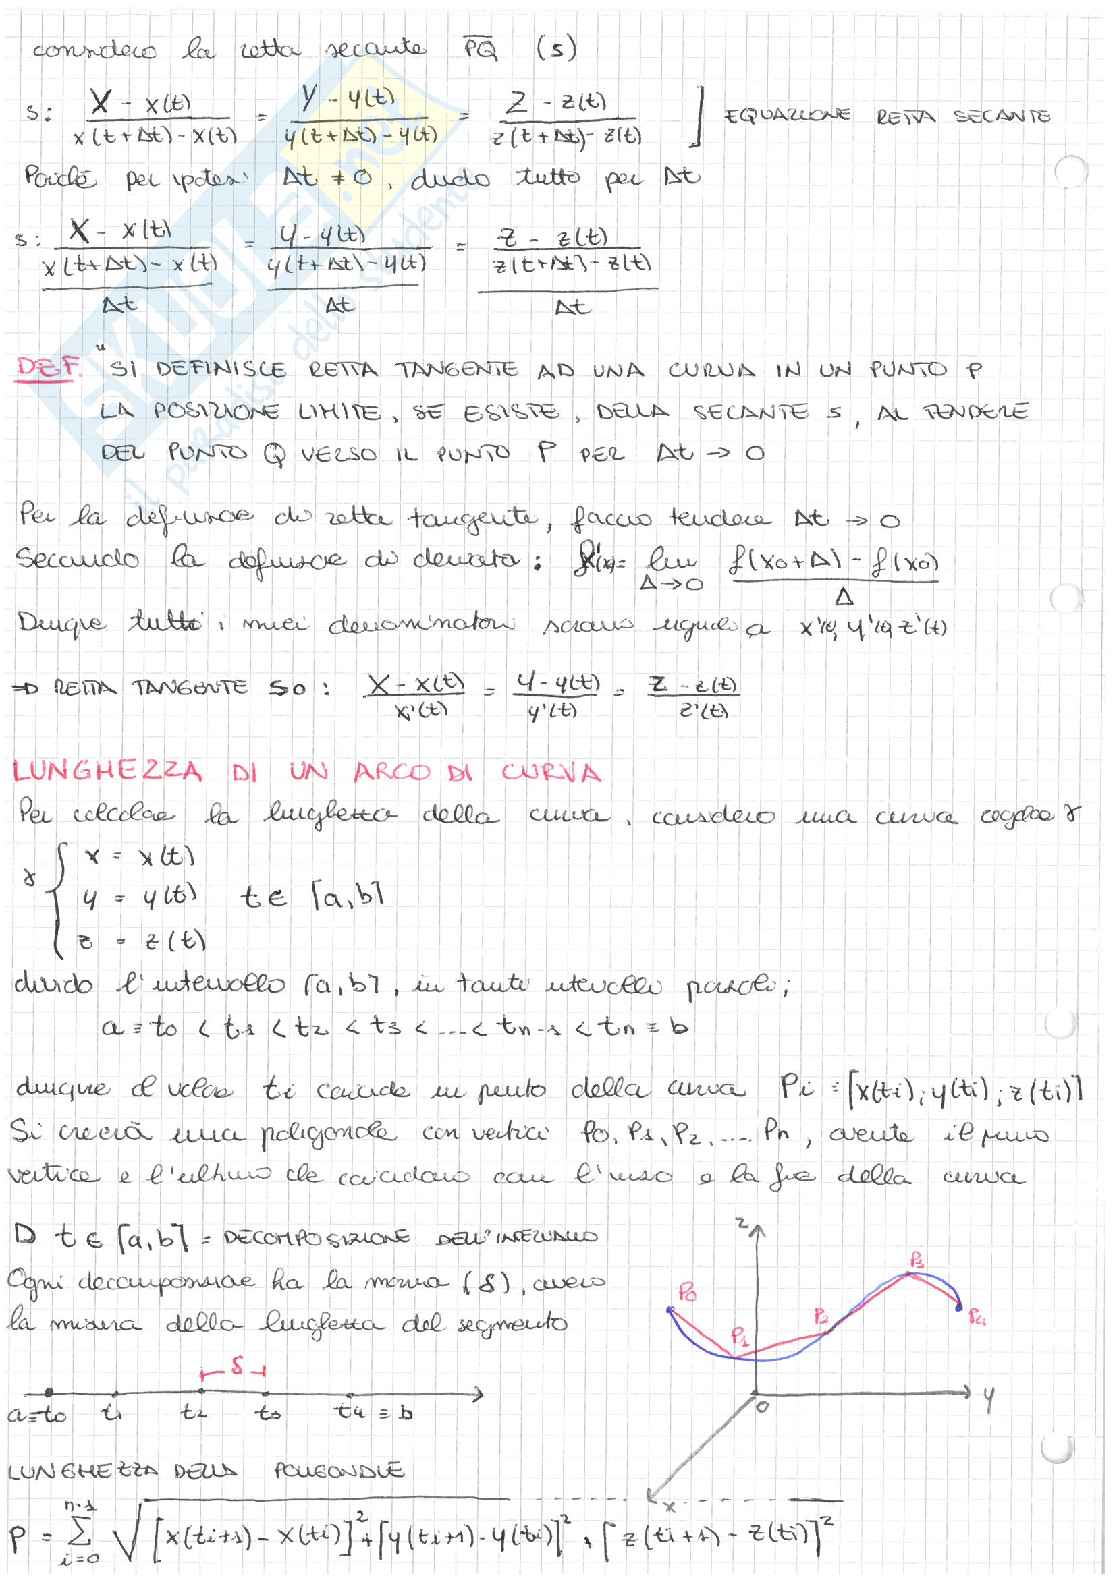 considero la retta secante P̅Q̅ (s)
s: (X - x(t))/(x(t+Δt)-x(t)) = (Y - y(t))/(y(t+Δt)-y(t)) = (Z - z(t))/(z(t+Δt)-z(t)) ] EQUAZIONE RETTA SECANTE
Poiché per ipotesi Δt ≠ 0, divido tutto per Δt
s: (X - x(t))/((x(t+Δt)-x(t))/Δt) = (y - y(t))/((y(t+Δt)-y(t))/Δt) = (z - z(t))/((z(t+Δt)-z(t))/Δt)
DEF. "SI DEFINISCE RETTA TANGENTE AD UNA CURVA IN UN PUNTO P
LA POSIZIONE LIMITE, SE ESISTE, DELLA SECANTE s, AL TENDERE
DEL PUNTO Q VERSO IL PUNTO P PER Δt → 0
Per la definizione di retta tangente, faccio tendere Δt → 0
Secondo la definizione di derivata: f'(x)= lim Δ→0 (f(x0+Δ) - f(x0))/Δ
Dunque tutti i miei denominatori saranno uguali a x'(t), y'(t), z'(t)
⇒ RETTA TANGENTE s0: (X - x(t))/x'(t) = (y - y(t))/y'(t) = (z - z(t))/z'(t)
LUNGHEZZA DI UN ARCO DI CURVA
Per calcolare la lunghezza della curva, considero una curva regolare γ
γ { x = x(t)
y = y(t) t ∈ [a,b]
z = z(t)
divido l'intervallo [a,b], in tanti intervalli piccoli;
a ≡ t0 < t1 < t2 < t3 < ... < tn-1 < tn ≡ b
dunque il valore ti coincide in punto della curva Pi = [x(ti); y(ti); z(ti)]
Si creerà una poligonale con vertici P0, P1, P2, .... Pn, avente il primo
vertice e l'ultimo che coincidano con l'inizio e la fine della curva
D t ∈ [a,b] = DECOMPOSIZIONE DELL'INTERVALLO
Ogni decomposizione ha la norma (δ), ovvero
la misura della lunghezza del segmento
δ
a≡t0 t1 t2 t3 t4 ≡ b
z
P0 P1 P2 P3 P4
O y
x
LUNGHEZZA DELLA POLIGONALE
P = Σ_{i=0}^{n-1} √([x(ti+1) - x(ti)]² + [y(ti+1) - y(ti)]² + [z(ti+1) - z(ti)]²)
SKUOLA.net
il paradiso dello studente